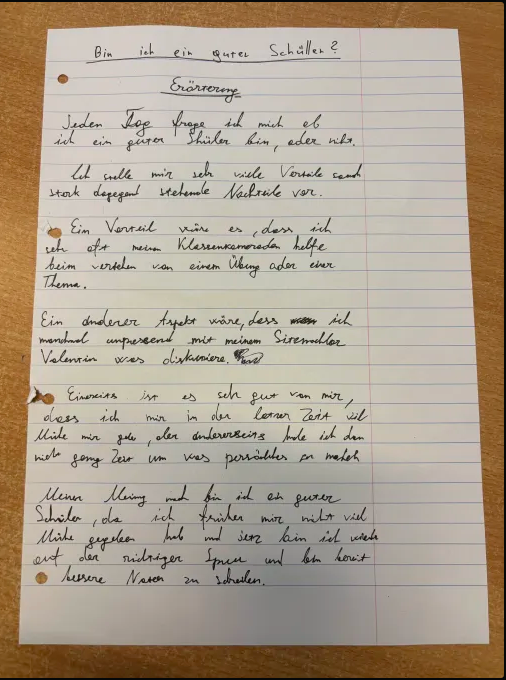 Bin ich ein guter Schüller?
Erörterung
Jeden Tag frage ich mich ob
ich ein guter Shüler bin, oder niht.
Ich stelle mir sehr viele Vorteile
stark dagegend stehende Nachteile vor.
Ein Vorteil wäre es, dass ich
sehr oft meinen Klassenkameraden helfe
beim verstehen von einem Übung oder einer
Thema.
Ein anderer Aspekt wäre, dass ich
manchmal unpassend mit meinem
Valentin was diskutiere.
Einerseits ist es sehr gut von mir,
dass ich mir in der Zeit viel
Mühe mir gebe, aber andererseits habe ich dan
nicht genug Zeit um was zu
Meiner Meinung nach bin ich ein guter
Schüler, da ich früher mir niht viel
Mühe gegeben hab und jetz bin ich wieder
auf der richtiger Spur und bin bereit
bessere Noten zu schreiben.